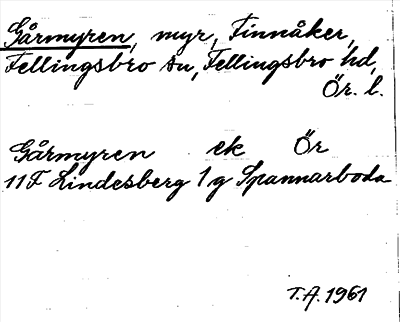 Gårmyren, myr, Finnåker,
Fellingsbro sn, Fellingsbro hd,
Ör. l.
Gårmyren ek Ör
11F Lindesberg 1g Spannarboda
T.A. 1961